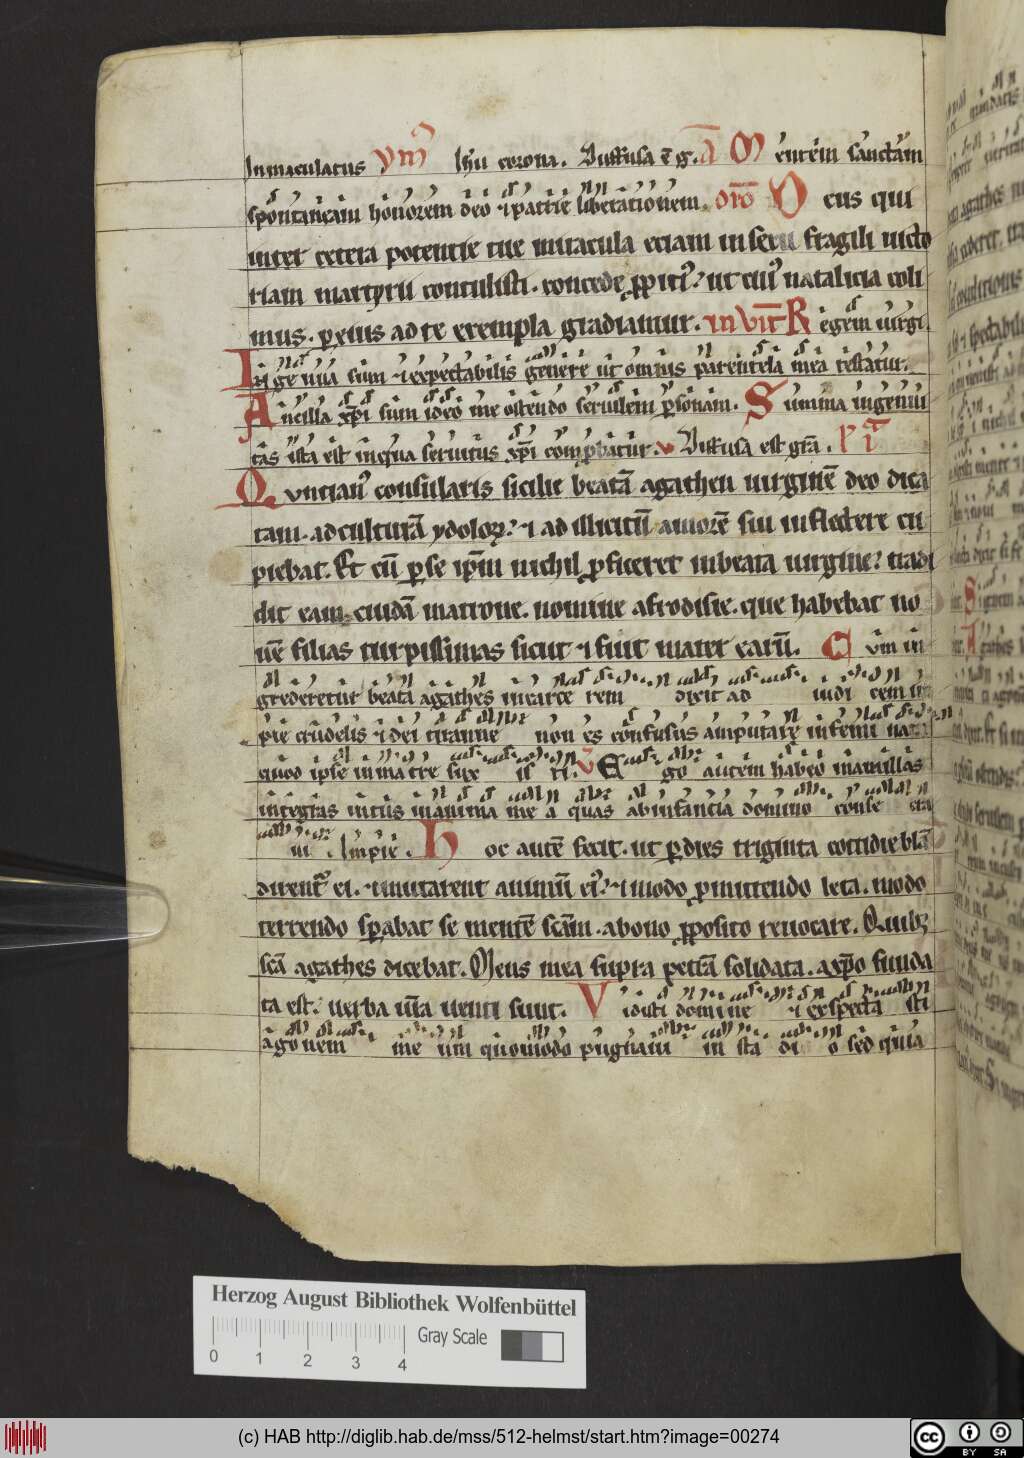 Inmaculatus ym̅ Ihu corona. Diffusa ē g. A̅ Mentem sanctam
spontaneam honorem deo ⁊ patrie liberationem. or̅o Deus qui
inter cetera potentie tue miracula etiam in sexu fragili victo
riam martyrii contulisti. concede ꝓpiti᾽. ut cui᾽ natalicia coli
mus. ꝑ eius ad te exempla gradiamur. invit̅ Regem virgi
Ingenua sum ⁊ expectabilis genere ut omnis parentela mea testatur.
Ancilla xp̅i sum ideo me ostendo servilem ꝑsonam. Summa ingenui
tas ista est in qua servitus xp̅i comprobatur. v Diffusa est grā.
Quncian᾽ consularis sicilie beatā agathen virginē deo dica
tam. ad culturā ydoloꝝ. ⁊ ad illicitū amorē sui inflectere cu
piebat. Et cū ꝑ se ip̅m nichil ꝓficeret in beata virgine. tradi
dit eam cuidā matrone. nomine afrodisie. que habebat no
uē filias turpissimas sicut ⁊ fuit mater earū. Cum in
grederetur beata agathes in carcerem dixit ad iudicem im
pie crudelis ⁊ dei tiranne non es confusus amputare in femina
quod ipse in matre suxisti. v Ego autem habeo mamillas
integras intus in anima mea quas ab infancia domino conse cra
vi. Impie. Hoc autē fecit. ut ꝑ dies triginta cottidie blā
dirent᾽ ei. ⁊ mutarent animū ei᾽. ⁊ modo ꝓmittendo leta. modo
terrendo sꝑabat se mentē scām. a bono ꝓposito revocare. Quib;
scā agathes dicebat. Mens mea supra petrā solidata. a xp̅o funda
ta est. verba v̅ra venti sunt. Vidisti domine ⁊ exspecta sti
agonem meum quomodo pugnavi in stadio sed quia
Herzog August Bibliothek Wolfenbüttel
Gray Scale
0 1 2 3 4
(c) HAB http://diglib.hab.de/mss/512-helmst/start.htm?image=00274
cc BY SA